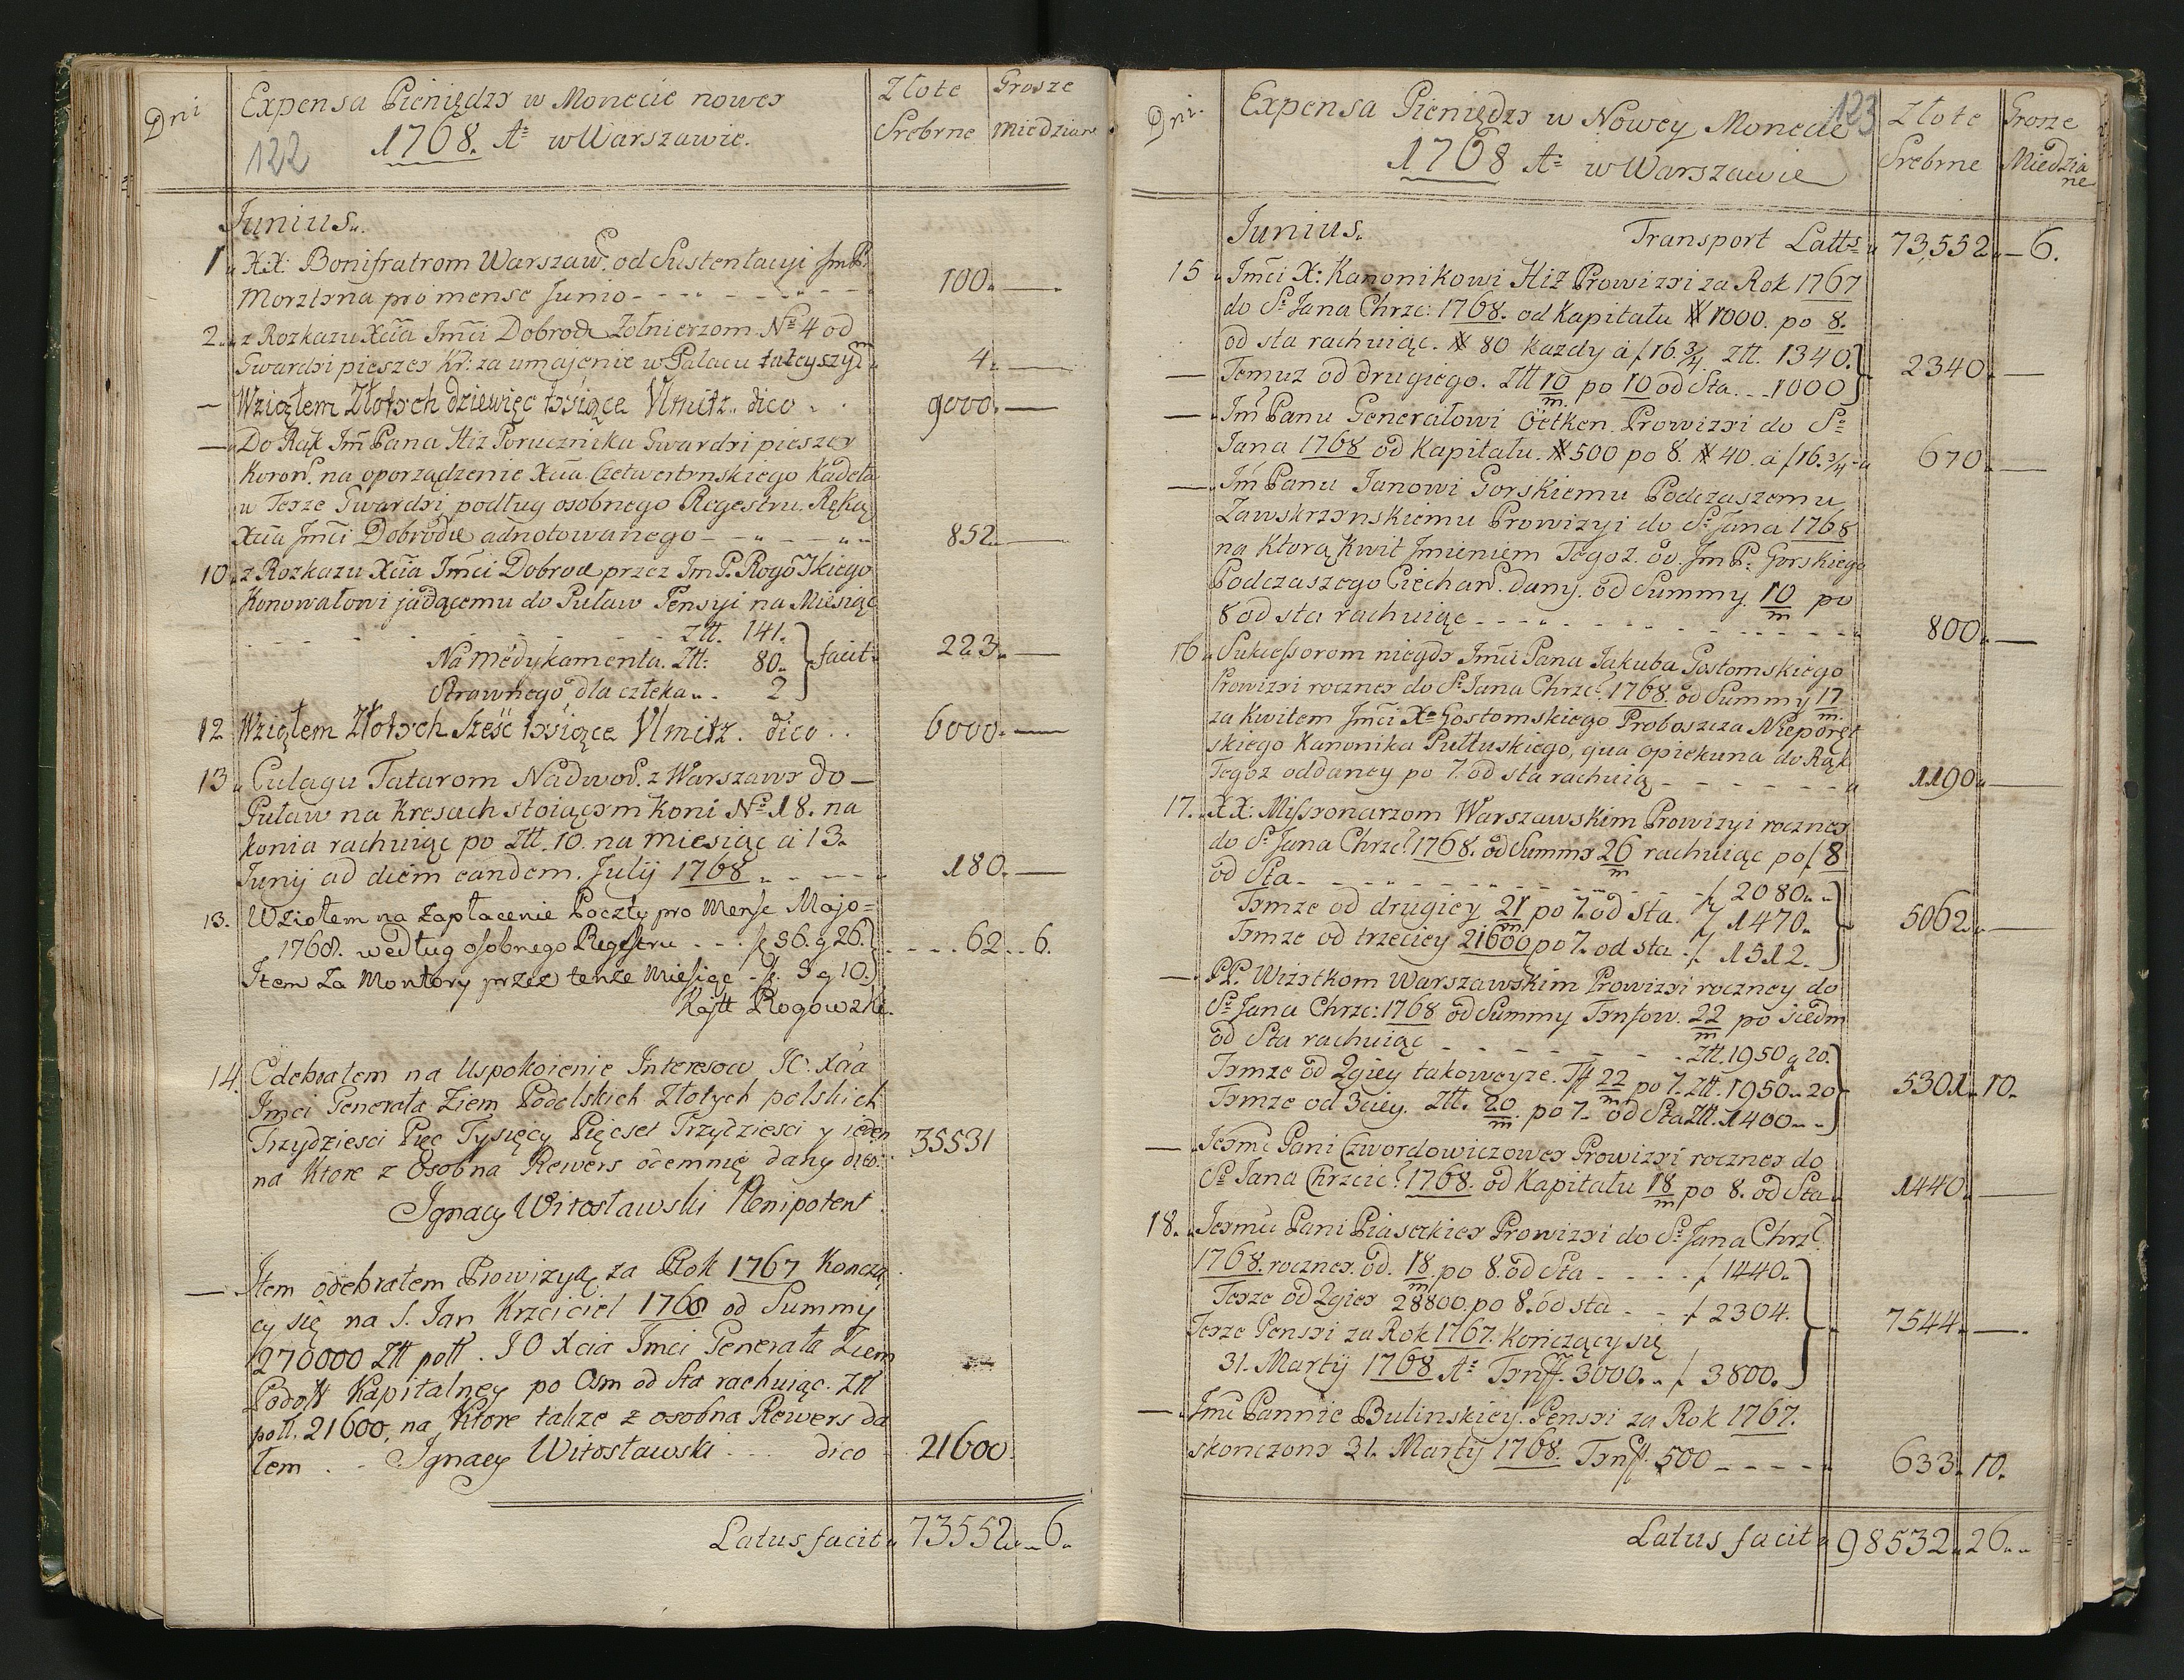 Dni
Expensa Pieniędzy w Monecie nowey
1768. Aº w Warszawie.
122
Złote Srebrne
Grosze Miedziane
Junius.
1. XX: Bonifratrom Warszaw. od Sustentacyi JmP.
Morztyna pro mense Junio - - - 100. —
2. z Rozkazu Xcia Jmci Dobrod. Żołnierzom Nº 4 od
Gwardyi pieszey Kr: za umajenie w Pałacu tuteyszym 4. —
— Wziąłem Złotych dziewięć tysięcy Vlmitz.. dico . . 9000. —
— Do Rąk Jm Pana Hiż Porucznika Gwardyi pieszey
Koron. na oporządzenie Xcia Czetwertynskiego Kadeta
w Teyze Gwardyi podług osobnego Regestru Ręką
Xcia Jmci Dobrodzie adnotowanego - - - 852. —
10. z Rozkazu Xcia Jmci Dobrod. przez JmP. Rogowskiego
Konowałowi jadącemu do Puław Pensyi na Miesiąc
- - - Ztt. 141.
Na Medykamenta. Ztt: 80. facit. 223. —
Strawnego dla człeka.. 2
12 Wziąłem Złotych Sześć tysięcy Vlmitz. dico . . 6000. —
13. Culagu Tatarom Nadwor. z Warszawy do —
Puław na Kresach stoiącym koni Nº 18. na
konia rachuiąc po Ztt. 10. na miesiąc a 13.
Junij ad diem eandem. Julij 1768 - - - 180. —
13. Wziołem na zapłacenie Poczty pro Mense Majo =
1768. według osobnego Regestru - - . f 56. g 26. . . . . 62 . . 6.
Item za Montory przez tenze Miesiąc - f. 5 g 10.
Kajtt Rogowski.
14. Odebrałem na Uspokoienie Interesow JO. Xcia
Jmci Generała Ziem Podolskich Złotych polskich
Trzydziesci Pięc Tysięcy Pięcset Trzydziesci y ieden 35531
na Ktore z Osobna Rewers odemnię dany dico.
Ignacy Witosławski Plenipotent
— Item odebrałem Prowizyą za Rok 1767 Koncżą
cy się na S. Jan Krzciciel 1768 od Summy
270000 Ztt poll. JO Xcia Jmci Generała Ziem
Podoll Kapitalney po Osm od sta rachuiąc. Ztt
poll. 21600, na Ktore takze z osobna Rewers da
łem . - Ignacy Witosławski . . . dico 21600.
Latus facit. 73552. . 6.
Dni.
Expensa Pieniędzy w Nowey Monecie
1768 Aº w Warszawie
123
Złote Srebrne
Grosze Miedziane
Junius. Transport Latts. 73,552. — 6.
15. Jmci X: Kanonikowi Hiż Prowizyi za Rok 1767
do Sº Jana Chrzc: 1768. od Kapitału # 1000. po 8.
od sta rachuiąc. # 80 kazdy à f 16. 3/4 Ztt. 1340.
— Temuz od drugiego. Ztt 10/m po 10 od Sta. . . 1000 2340. —
— Jm Panu Generałowi Oetken Prowizyi do Sº
Jana 1768 od Kapitału. # 500 po 8. # 40. à f 16. 3/4 670. —
— Jm Panu Janowi Gorskiemu Podczaszemu
Zawskrzynskiemu Prowizyi do Sº Jana 1768
na Którą Kwit Jmieniem Tegoż. od. JmP. Gorskiego
Podczaszego Ciechan. dany. od Summy. 10/m po
8 od sta rachuiąc - - - 800. —
16. Sukcessorom niegdy Jmci Pana Jakuba Gostomskiego
Prowizyi roczney do Sº Jana Chrzc. 1768. od Summy 17/m.
za Kwitem Jmci Xº Gostomskiego Proboszcza Nieporęt
skiego Kanonika Pułtuskiego, qua opiekuna do Rąk
Tegoż oddaney po 7. od sta rachuią - - - 1190. —
17. XX: Missyonarzom Warszawskim Prowizyi roczney
do Sº Jana Chrzc. 1768. od Summy 26/m rachuiąc po f 8
od Sta - - - f 2080. .
Tymze od drugiey 21/m po 7. od sta. f 1470. 5062. —
Tymze od trzeciey 21600 po 7. od sta . f. 1512.
— PP. Wizytkom Warszawskim Prowizyi roczney do
Sº Jana Chrzc: 1768 od Summy Tynfow. 22/m po siedm
od Sta rachuiąc - - - Ztt. 1950 g 20.
Tymze od 2giey takoweyze. Tff 22/m po 7. Ztt. 1950. . 20 5301. 10.
Tymze od 3ciey. Ztt. 20/m. po 7. od Sta Ztt. 1400. .
— Jeymc Pani Czwordowiczowey Prowizyi roczney do
Sº Jana Chrzcic. 1768. od Kapitału 18/m po 8. od Sta 1440. —
18. Jeymci Pani Piaseckiey Prowizyi do Sº Jana Chrzc.
1768. roczney. od. 18/m. po 8. od Sta - - . . f 1440.
Teyze od 2giey 28800. po 8. od sta - - f 2304. 7544. —
Teyze Pensyi za Rok 1767. Kończący się
31. Martij 1768 Aº Tynff. 3000. . f 3800.
— Jmci Pannie Bulinskiey. Pensyi za Rok 1767.
skonczony 31. Martij 1768. Tynff. 500 - - - 633. 10.
Latus facit. 98532. 26. .